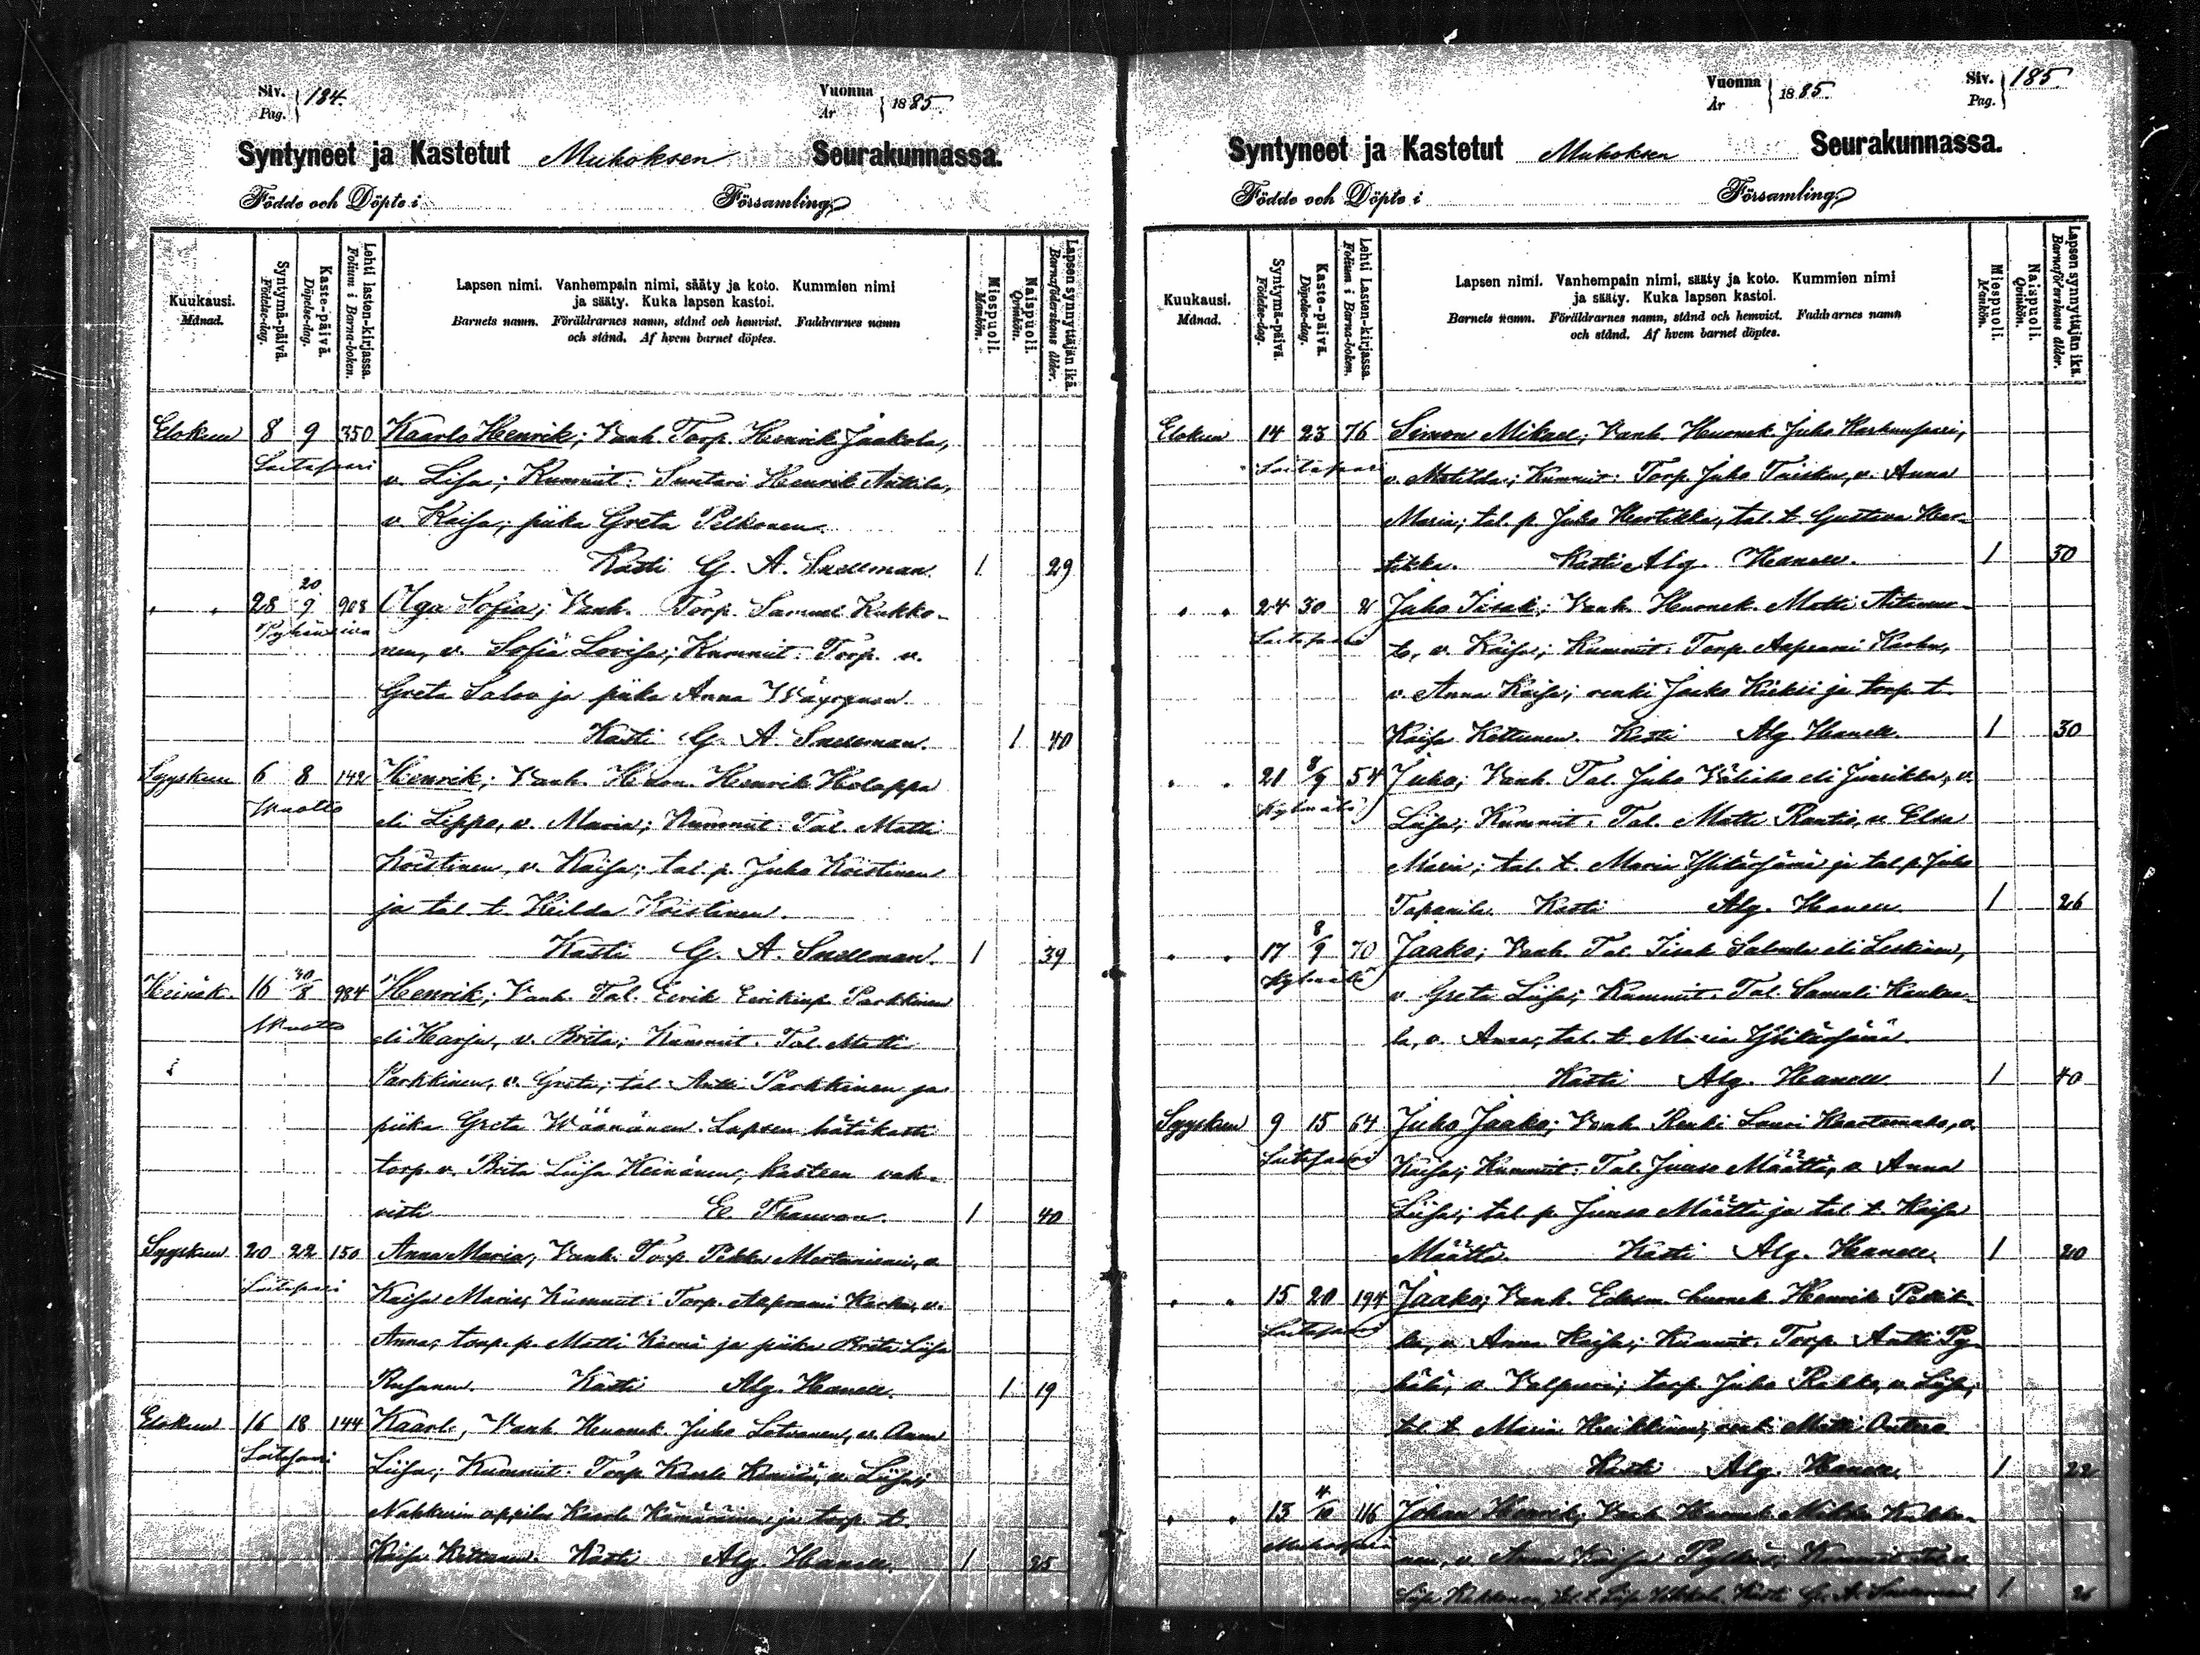 Siv. Pag. 184.
Vuonna År 1885
Syntyneet ja Kastetut Muhoksen Seurakunnassa.
Födde och Döpte i Församling
Kuukausi. Månad.
Syntymä-päivä. Födelse-dag.
Kaste-päivä. Döpelse-dag.
Lehti lasten-kirjassa. Folium i Barna-boken.
Lapsen nimi. Vanhempain nimi, sääty ja koto. Kummien nimi
ja sääty. Kuka lapsen kastoi.
Barnets namn. Föräldrarnes namn, stånd och hemvist. Faddrarnes namn
och stånd. Af hvem barnet döptes.
Miespuoli. Mankön.
Naispuoli. Qvinkön.
Lapsen synnyttäjän ikä. Barnaföderskans ålder.
Elokuu 8 9 350 Kaarlo Henrik; Vanh. Torp. Henrik Jaakola,
Laitasaari v. Liisa; Kummit: Suutari Henrik Anttila,
v. Kaisa; piika Greta Pelkonen.
Kasti G. A. Snellman. 1 29
" " 28 20/9 908 Olga Sofia; Vanh. Torp. Samuel Kukko-
nen, v. Sofia Lovisa; Kummit: Torp. v.
Greta Saloa ja piika Anna Väyrynen.
Kasti G. A. Snellman. 1 40
Syyskuu 6 8 142 Henrik; Vanh. Huon. Henrik Holappa
Muotto eli Leppo, v. Maria; Kummit: Tal. Matti
Koistinen, v. Kaisa; tal. p. Juho Koistinen
ja tal. t. Hilda Koistinen.
Kasti G. A. Snellman. 1 39
Heinäk. 16 30/8 984 Henrik; Vanh. Tal. Eerik Eerikinp. Parkkinen
Muotto eli Harju, v. Brita; Kummit: Tal. Matti
Parkkinen, v. Greta; tal. Antti Parkkinen ja
piika Greta Väänänen. Lapsen hätäkasti
torp. v. Brita Liisa Heinänen; kasteen vah-
visti E. Thauvon. 1 40
Syyskuu 20 22 150 Anna Maria; Vanh. Torp. Pekka Mertaniemi, v.
Laitasaari Kaisa Maria; Kummit: Torp. Aaprami Karhu, v.
Anna; torp. p. Matti Kärnä ja piika Brita Liisa
Kasti Alg. Hanell. 1 19
Elokuu 16 18 144 Kaarlo; Vanh. Huonek. Juho Lotvonen, v. Anna
Laitasaari Liisa; Kummit: Torp. Kaarle v. Liisa;
Nahkurin oppilas Kaarle Hämäläinen ja torp. t.
Kaisa Kettunen. Kasti Alg. Hanell. 1 25
Vuonna År 1885
Siv. Pag. 185.
Syntyneet ja Kastetut Muhoksen Seurakunnassa.
Födde och Döpte i Församling
Kuukausi. Månad.
Syntymä-päivä. Födelse-dag.
Kaste-päivä. Döpelse-dag.
Lehti Lasten-kirjassa. Folium i Barna-boken.
Lapsen nimi. Vanhempain nimi, sääty ja koto. Kummien nimi
ja sääty. Kuka lapsen kastoi.
Barnets namn. Föräldrarnes namn, stånd och hemvist. Faddrarnes namn
och stånd. Af hvem barnet döptes.
Miespuoli. Mankön.
Naispuoli. Qvinkön.
Lapsen synnyttäjän ikä. Barnaföderskans ålder.
Elokuu 14 23 76 Simon Mikael; Vanh. Huonek. Juho
Laitasaari v. Matilda; Kummit: Torp. Juho v. Anna
Maria; tal. p. Juho Hartikka, tal. t. Gustava Har-
tikka. Kasti Alg. Hanell. 1 30
" " 24 30 21 Juho Iisak; Vanh. Huonek. Matti
Laitasaari v. Kaisa; Kummit: Torp. Aaprami Karhu,
v. Anna Kaisa; renki Jaako Kiekki ja torp. t.
Kaisa Kettunen. Kasti Alg. Hanell. 1 30
" " 21 8/9 54 Juho; Vanh. Tal. Juho eli Juurikka, v.
Kylmälä Liisa; Kummit: Tal. Matti Rautio, v. Elsa
Maria; tal. t. Maria Ylitörhänä ja tal. p. Juho
Tapanila. Kasti Alg. Hanell. 1 26
" " 17 8/9 70 Jaako; Vanh. Tal. Iisak eli Leskinen,
Kylmälä v. Greta Liisa; Kummit: Tal. Samuli
la, v. Anna; tal. t. Maria
Kasti Alg. Hanell 1 40
Syyskuu 9 15 64 Juho Jaako; Vanh. Renki Lauri v.
Laitasaari Kaisa; Kummit: Tal. Juuso Määttä, v. Anna
Liisa; tal. p. Juuso Määttä ja tal. t. Kaisa
Määttä. Kasti Alg. Hanell. 1 20
" " 15 20 194 Jaako; Vanh. Edesm. huonek. Henrik
Laitasaari v. Anna Kaisa; Kummit: Torp. Antti Py-
v. Valpuri; torp. Juho v. Liisa;
tal. t. Maria Heikkinen; renki Matti Outere
Kasti Alg. Hanell 1 22
" " 13 4/10 116 Johan Henrik; Vanh. Huonek. Kukko-
nen, v. Anna Kaisa Pylkäs; Kummit:
Kasti G. A. Snellman 1 26